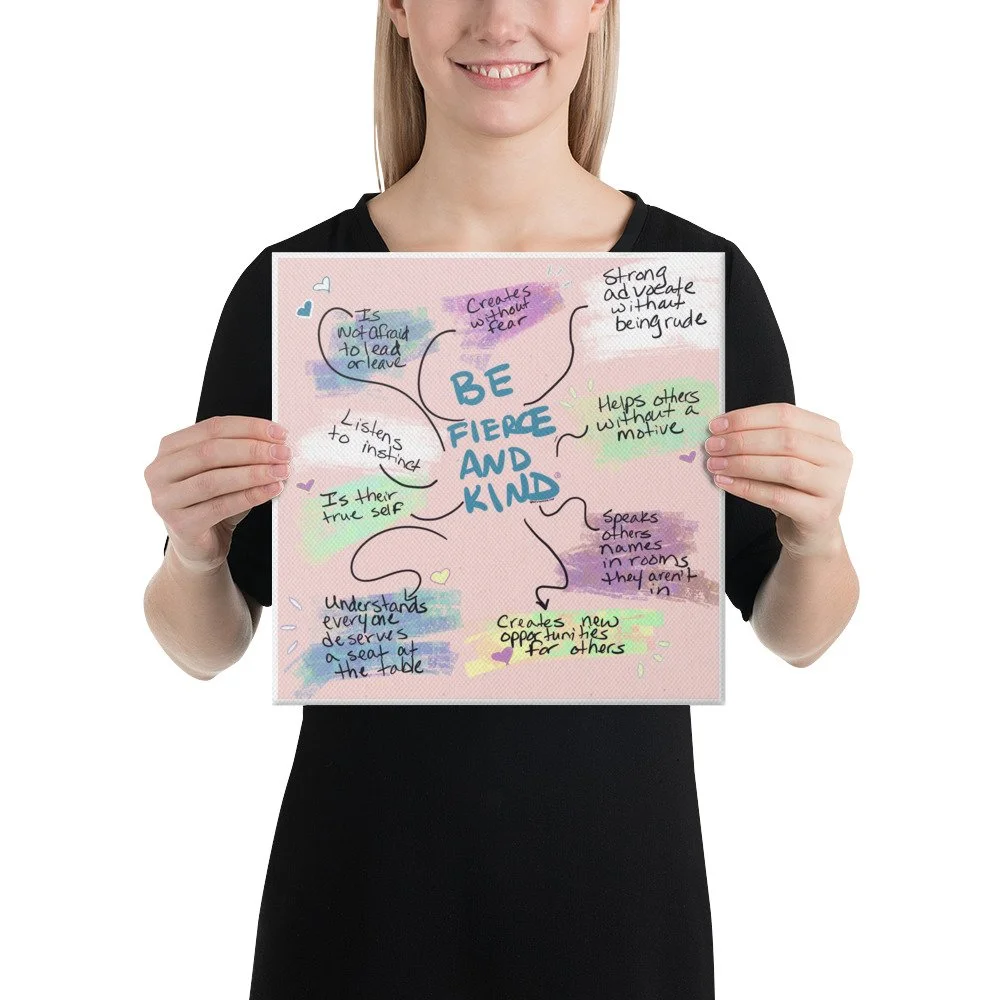 Is
Not afraid
to lead
or leave
Creates
without
fear
Strong
advocate
without
being rude
BE
FIERCE
AND
KIND
Listens
to instinct
Helps others
without a
motive
Is their
true self
Speaks
others
names
in rooms
they aren't
in
Understands
everyone
deserves
a seat at
the table
Creates new
opportunities
for others